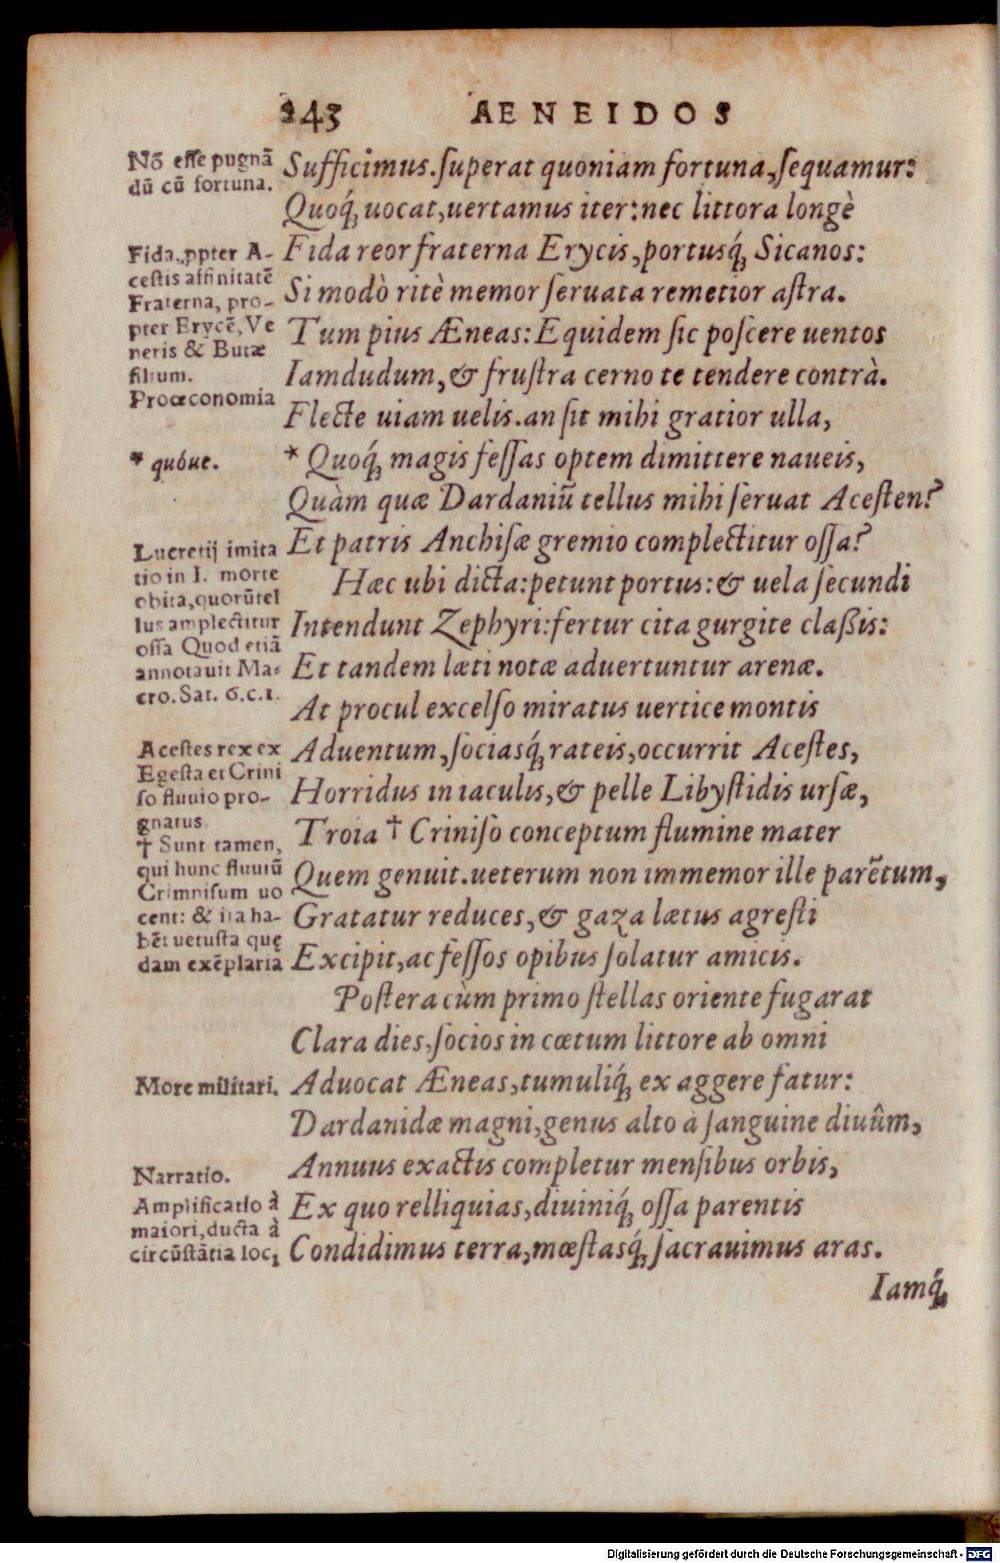 243 AENEIDOS
Nō esse pugnā
dū cū fortuna.
Sufficimus.superat quoniam fortuna,sequamur:
Quoq́; uocat,uertamus iter:nec littora longè
Fida,ppter A-
cestis affinitatē
Fraterna, pro-
pter Erycē, Ve
neris & Butæ
filium.
Proœconomia
Fida reor fraterna Erycis,portusq́; Sicanos:
Si modò ritè memor seruata remetior astra.
Tum pius Æneas:Equidem sic poscere uentos
Iamdudum,& frustra cerno te tendere contrà.
Flecte uiam uelis.an sit mihi gratior ulla,
* quóue.
* Quoq́; magis fessas optem dimittere naueis,
Quàm quæ Dardaniū tellus mihi seruat Acesten?
Lucretij imita
tio in I. morte
obita,quorūtel
lus amplectitur
ossa Quod etiā
annotauit Ma-
cro.Sat. 6.c.1.
Et patris Anchisæ gremio complectitur ossa?
Hæc ubi dicta:petunt portus:& uela secundi
Intendunt Zephyri:fertur cita gurgite claßis:
Et tandem læti notæ aduertuntur arenæ.
At procul excelso miratus uertice montis
Acestes rex ex
Egesta et Crini
so fluuio pro-
gnatus.
† Sunt tamen,
qui hunc fluuiū
Crimnisum uo
cent: & ita ha-
bēt uetusta quę
dam exēplaria
Aduentum,sociasq́; rateis,occurrit Acestes,
Horridus in iaculis,& pelle Libystidis ursæ,
Troia † Criniso conceptum flumine mater
Quem genuit.ueterum non immemor ille parētum,
Gratatur reduces,& gaza lætus agresti
Excipit,ac fessos opibus solatur amicis.
Postera cùm primo stellas oriente fugarat
Clara dies,socios in cœtum littore ab omni
More militari.
Aduocat Æneas,tumuliq́; ex aggere fatur:
Dardanidæ magni,genus alto à sanguine diuûm,
Narratio.
Annuus exactis completur mensibus orbis,
Amplificatio à
maiori,ducta à
circūstātia loci
Ex quo relliquias,diuiniq́; ossa parentis
Condidimus terra,mœstasq́; sacrauimus aras.
Iamq́;
Digitalisierung gefördert durch die Deutsche Forschungsgemeinschaft - DFG